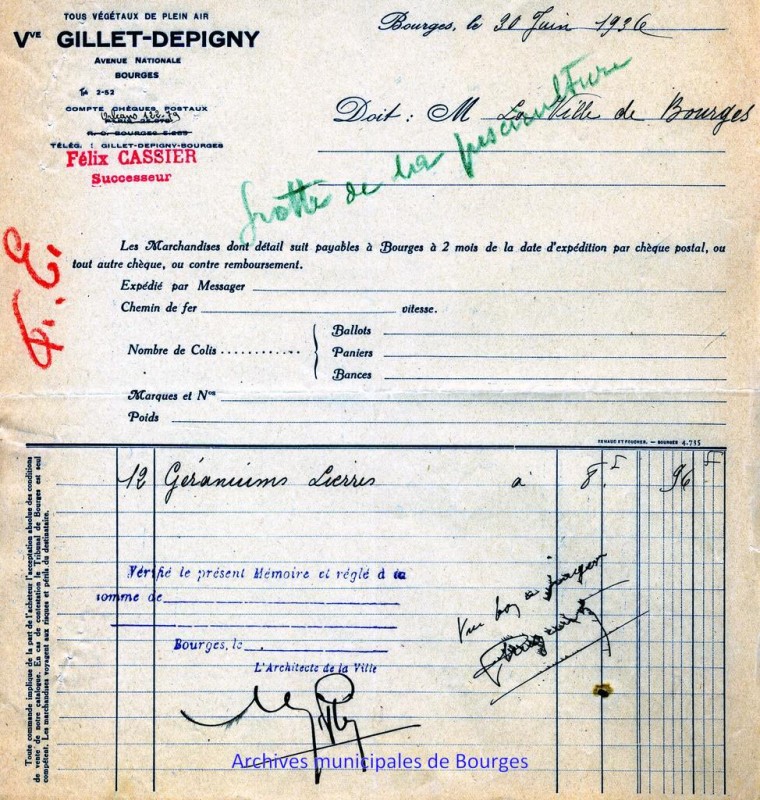 TOUS VÉGÉTAUX DE PLEIN AIR
Vve GILLET-DEPIGNY
AVENUE NATIONALE
BOURGES
Tél 2-52
COMPTE CHÈQUES POSTAUX
Orléans
R. C. BOURGES
TÉLÉG. : GILLET-DEPIGNY-BOURGES
Félix CASSIER
Successeur
Bourges, le 30 Juin 1936
Doit : M La Ville de Bourges
grotte de la pisciculture
Les Marchandises dont détail suit payables à Bourges à 2 mois de la date d'expédition par chèque postal, ou
tout autre chèque, ou contre remboursement.
Expédié par Messager
Chemin de fer vitesse.
Nombre de Colis
Ballots
Paniers
Bances
Marques et Nos
Poids
RENAUD ET FOUCHER. — BOURGES 4-735
12 Géraniums Lierres à 8.F 96 F
Vérifié le présent Mémoire et réglé à la
somme de
Bourges, le
L'Architecte de la Ville
Vu bon à
Toute commande implique de la part de l'acheteur l'acceptation absolue des conditions
de vente de notre catalogue. En cas de contestation le Tribunal de Bourges est seul
compétent. Les marchandises voyagent aux risques et périls du destinataire.
Archives municipales de Bourges